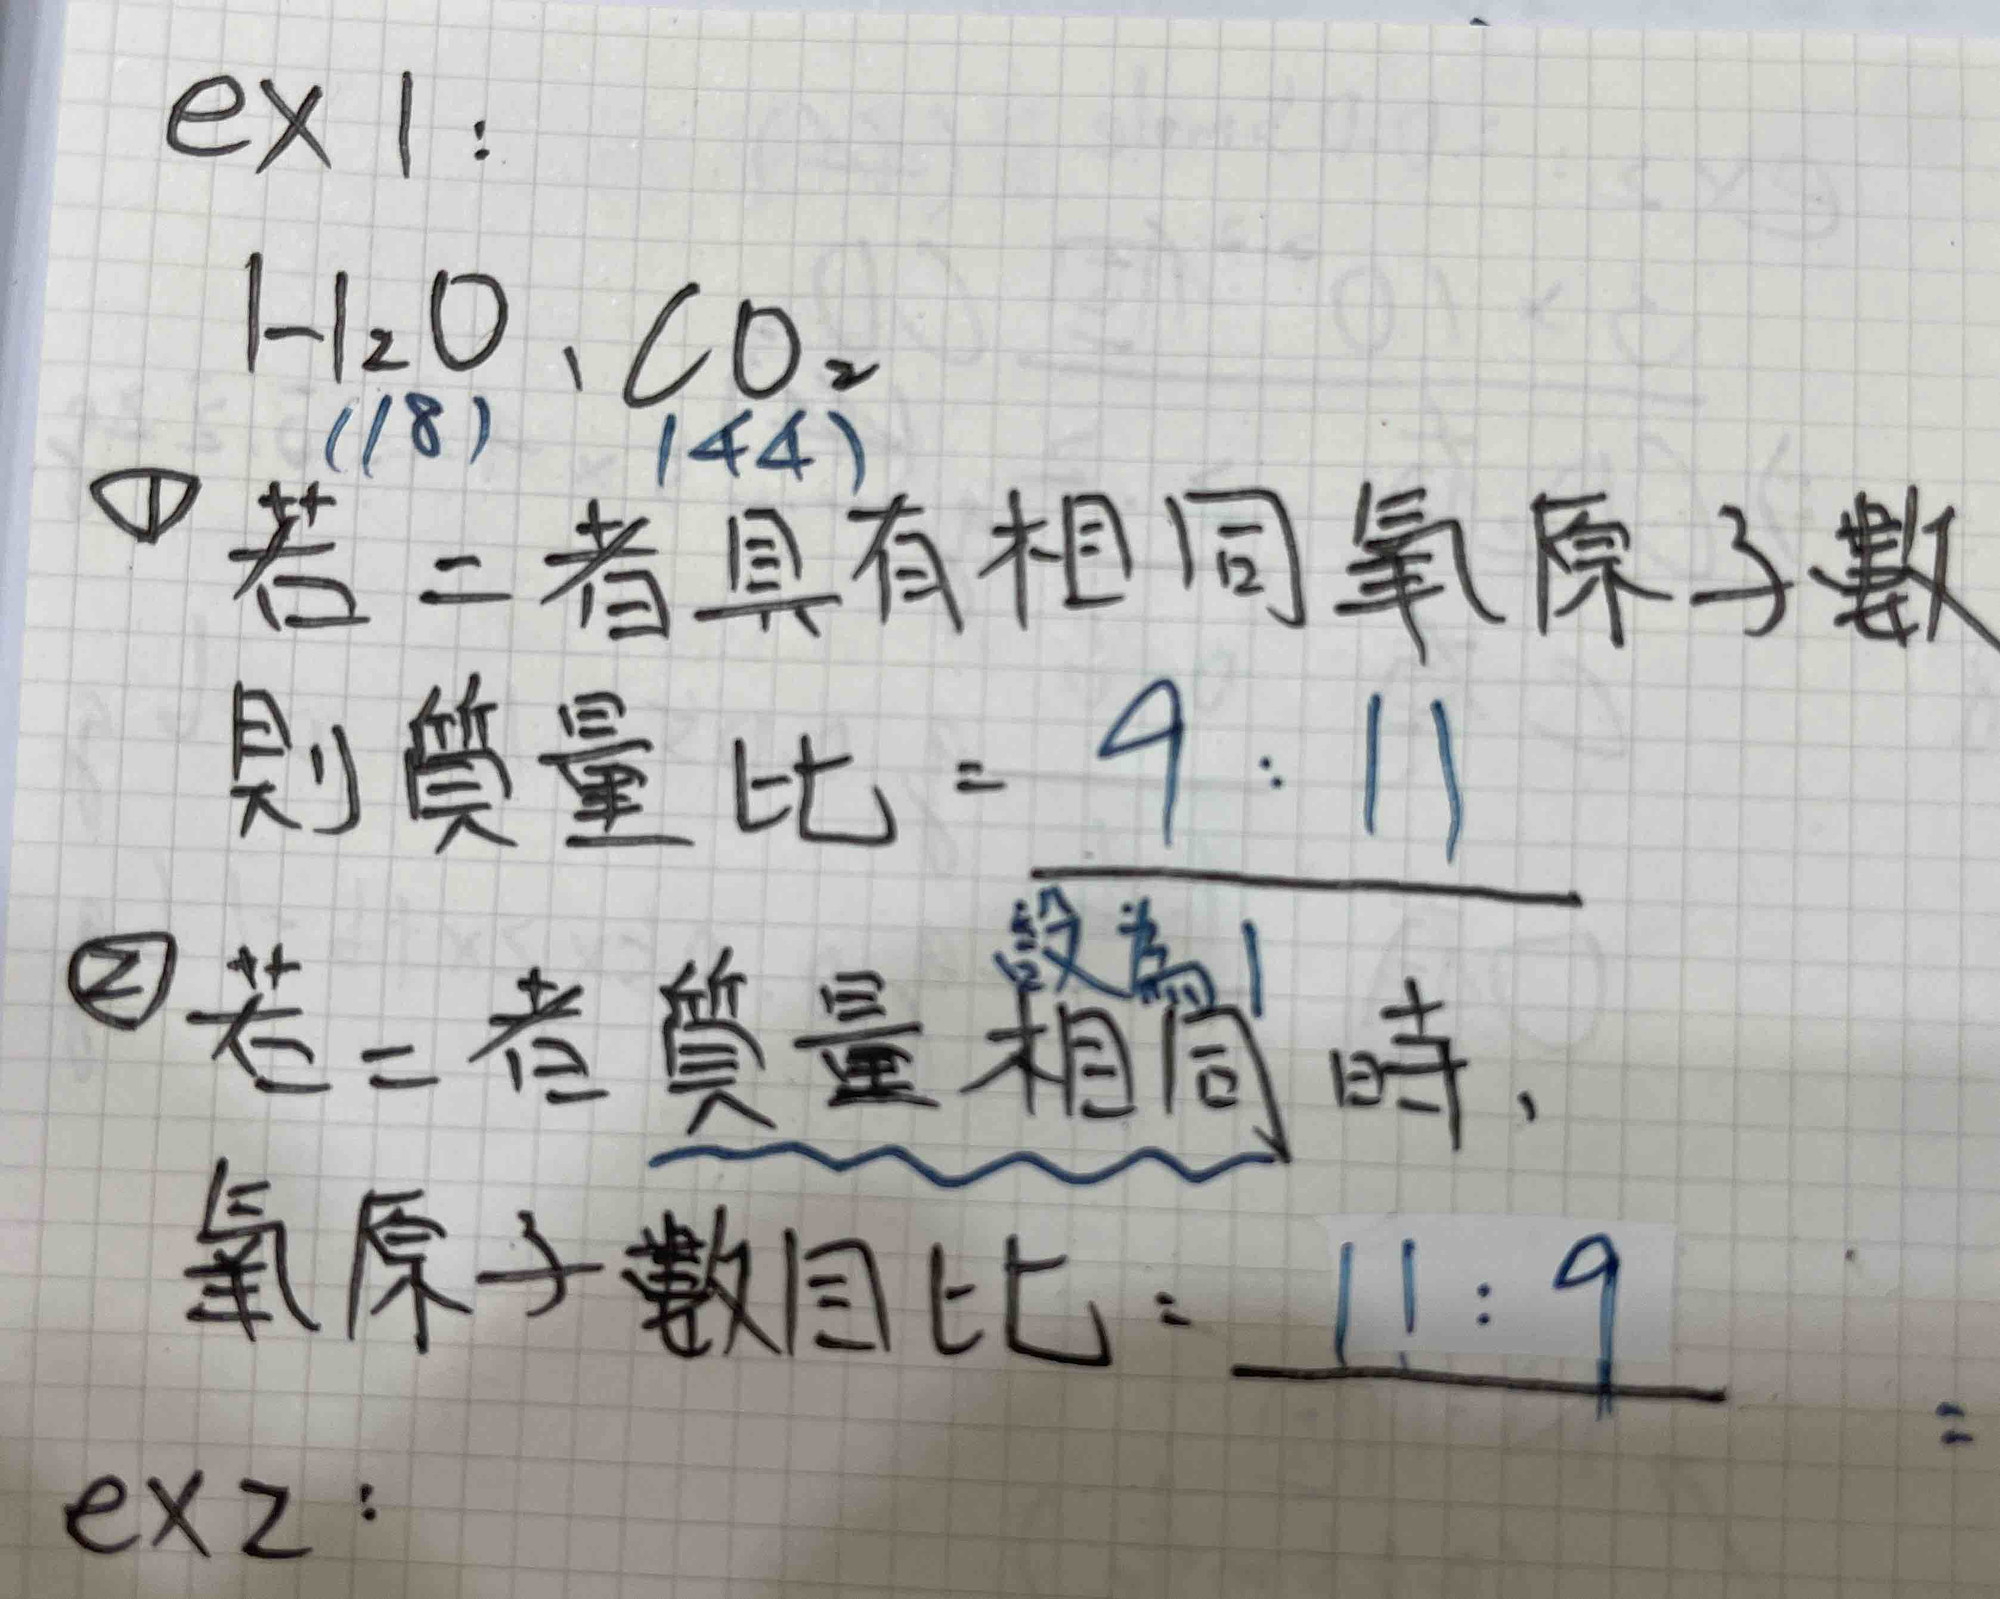 ex 1:
H₂O、CO₂
(18) (44)
① 若二者具有相同氧原子數
則質量比 = 9 : 11
設為1
② 若二者質量相同時、
氧原子數目比 = 11 : 9
=
ex 2: